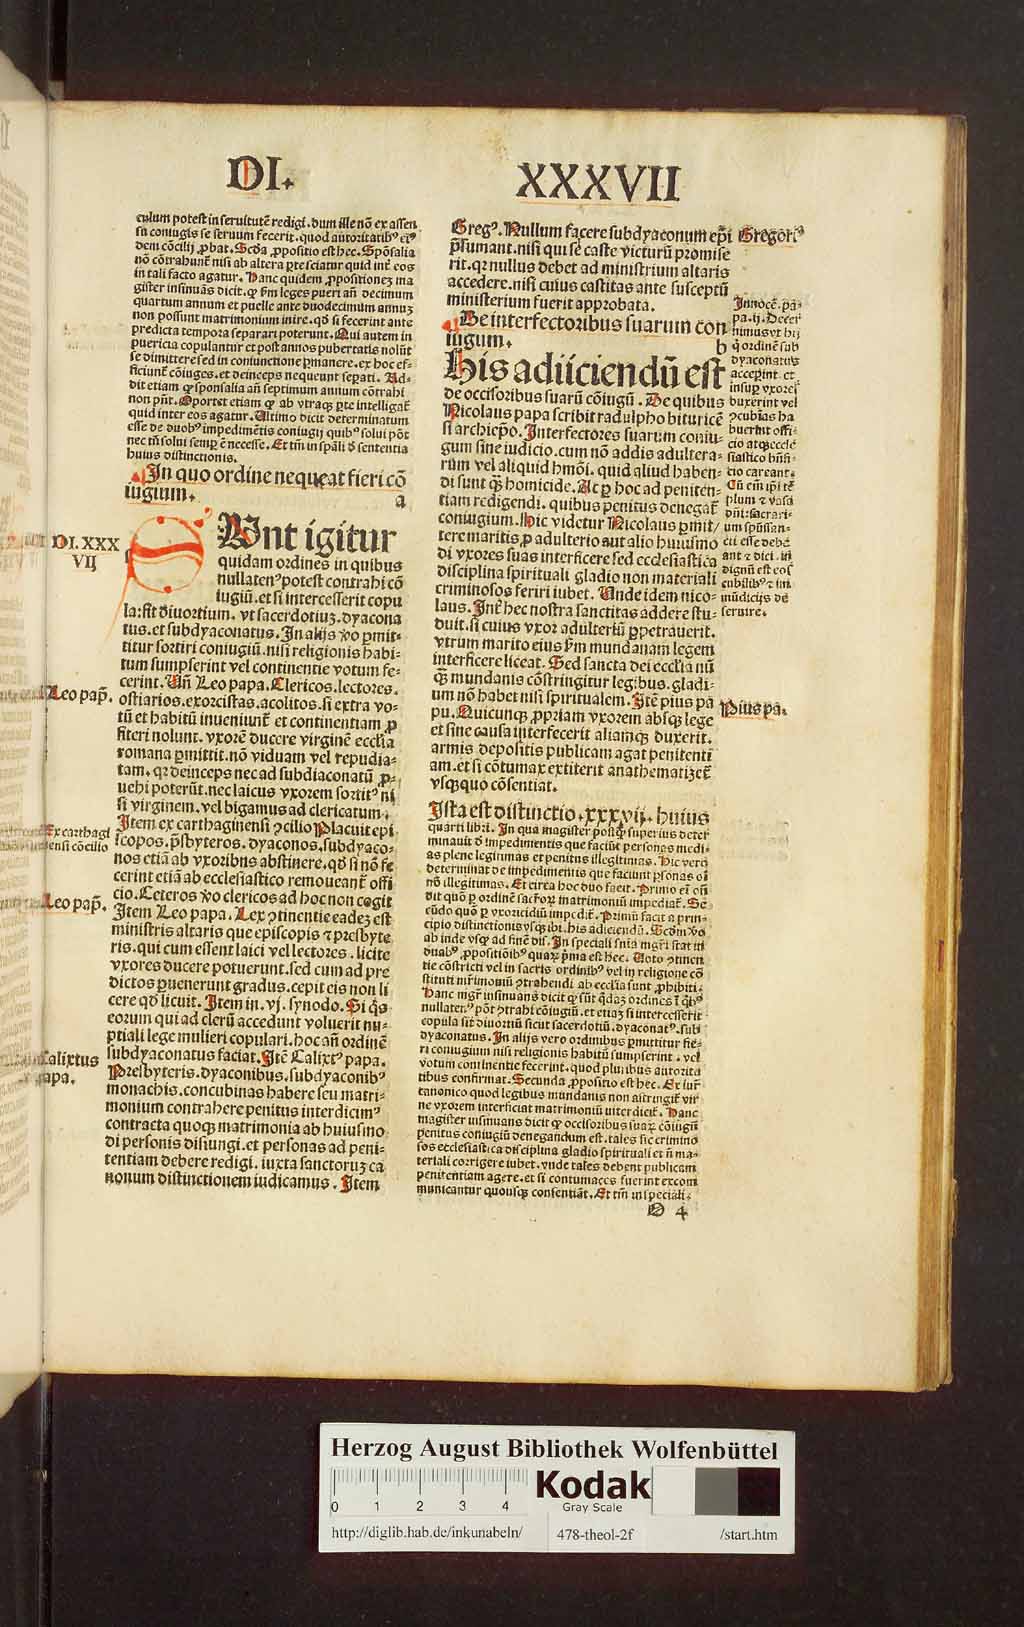 DI.
XXXVII
culum potest in seruitutē redigi. dum ille nō ex assen
su coniugis se seruum fecerit. quod autoritatibꝰ eiꝰ
dem cōcilij ꝓbat. Scd̓a ꝓpositio est hec. Spōsalia
nō cōtrahunt᷑ nisi ab altera ꝑte sciatur quid int᷑ eos
in tali facto agatur. Hanc quidem ꝓpositionez ma
gister insinuās dicit. ꝙ ẜm leges pueri an̄ decimum
quartum annum et puelle ante duodecimum annuz
non possunt matrimonium inire. qd̓ si fecerint ante
predicta tempora separari poterunt. Qui autem in
puericia copulantur et post annos pubertatis nolūt
se dimittere sed in coniunctione ꝑmanere. ex hoc ef-
ficiunt᷑ cōiuges. et deinceps nequeunt seꝑati. Ad-
dit etiam ꝙ sponsalia an̄ septimum annum cōtrahi
non pn̄t. Oportet etiam ꝙ ab vtraqꝫ ꝑte intelligat᷑
quid inter eos agatur. Ultimo dicit determinatum
esse de duobꝰ impedimētis coniugij quibꝰ solui pōt
nec tn̄ solui semꝑ ē necesse. Et tm̄ in sp̄ali ꝺ̄ sententia
huius distinctionis.
In quo ordine nequeat fieri cō
iugium.
a
DI. XXX
VIJ
SUnt igitur
quidam ordines in quibus
nullatenꝰ potest contrahi cō
iugiū. et si intercesserit copu
la: fit diuortium. vt sacerdotiuz. dyacona
tus. et subdyaconatus. In alijs ꝟo ꝑmit-
titur sortiri coniugiū. nisi religionis habi-
tum sumpserint vel continentie votum fe-
cerint. Un̄ Leo papa. Clericos. lectores.
Leo pap̄.
ostiarios. exorcistas. acolitos. si extra vo-
tū et habitū inueniunt᷑ et continentiam ꝓ
fiteri nolunt. vxorē ducere virginē ecclīa
romana ꝑmittit. nō viduam vel repudia-
tam. qꝛ deinceps nec ad subdiaconatū ꝓ-
uehi poterūt. nec laicus vxorem sortitꝰ ni
si virginem. vel bigamus ad clericatum.
Ex carthagi
ensi cōcilio
Item ex carthaginensi ꝯcilio Placuit epi
scopos. p̄sbyteros. dyaconos. subdyaco-
nos etiā ab vxoribus abstinere. qd̓ si nō fe
cerint etiā ab ecclesiastico remoueant᷑ offi
cio. Ceteros ꝟo clericos ad hoc non cogit
Leo pap̄.
Item Leo papa. Lex ꝯtinentie eadez est
ministris altaris que episcopis ⁊ presbyte
ris. qui cum essent laici vel lectores. licite
vxores ducere potuerunt. sed cum ad pre
dictos ꝑuenerunt gradus. cepit eis non li
cere qd̓ licuit. Item in .vj. synodo. Si q̇s
eorum qui ad clerū accedunt voluerit nu-
ptiali lege mulieri copulari. hoc an̄ ordinē
subdyaconatus faciat. Itē Calixtꝰ papa.
Calixtus
papa.
Presbyteris. dyaconibus. subdyaconibꝰ
monachis. concubinas habere seu matri-
monium contrahere penitus interdicimꝰ
contracta quoqꝫ matrimonia ab huiusmo
di personis disiungi. et personas ad peni-
tentiam debere redigi. iuxta sanctoruz ca
nonum distinctionem iudicamus. Item
Gregꝰ. Nullum facere subdyaconum ep̄i
Gregoriꝰ
p̄sumant. nisi qui se caste victurū promise
rit. qꝛ nullus debet ad ministrium altaris
accedere. nisi cuius castitas ante susceptū
ministerium fuerit approbata.
De interfectoribus suarum con
iugum.
b
His adijciendū est
de occisoribus suarū cōiugū. De quibus
Nicolaus papa scribit radulpho bituricē
si archiep̄o. Interfectores suarum coniu-
gum sine iudicio. cum nō addis adultera-
rum vel aliquid hmōi. quid aliud haben-
di sunt qꝫ homicide. Ac ꝑ hoc ad peniten-
tiam redigendi. quibus penitus denegat᷑
coniugium. Hic videtur Nicolaus ꝑmit-
tere maritis ꝓ adulterio aut alio huiusmo
di vxores suas interficere sed ecclesiastica
disciplina spirituali gladio non materiali
criminosos feriri iubet. Unde idem nico-
laus. Int᷑ hec nostra sanctitas addere stu-
duit. si cuius vxor adulteriū ꝑpetrauerit.
vtrum marito eius ẜm mundanam legem
interficere liceat. Sed sancta dei ecclīa nū
qꝫ mundanis cōstringitur legibus. gladi-
um nō habet nisi spiritualem. Itē pius pa
Pius pa.
pu. Quicunqꝫ ꝓpriam vxorem absqꝫ lege
et sine causa interfecerit aliamqꝫ duxerit.
armis depositis publicam agat penitenti
am. et si cōtumax extiterit anathematizet᷑
vsqꝫquo cōsentiat.
Innocē. pa-
pa .ij. Decer
nimus vt hij
q̇ ordinē sub
dyaconatus
acceperint et
insuꝑ vxores
duxerint vel
ꝯcubinas ha
buerint offi-
cio atqꝫ eccle
siastico bn̄fi-
cio careant.
Cū em̄ ip̄i tē
plum ⁊ vasa
dn̄i: sacrari-
um sp̄ūssan-
cti esse debe
ant ⁊ dici. in
dignū est eos
cubilibꝰ ⁊ im
mūdicijs de
seruire.
Ista est distinctio .xxxvij. huius
quarti libri. In qua magister postqꝫ superius deter
minauit ꝺ̄ impedimentis que faciūt personas medi-
as plene legitimas et penitus illegitimas. Hic vero
determinat de impedimentis que faciunt ꝑsonas oī
nō illegitimas. Et circa hoc duo facit. Primo em̄ oñ
dit quō ꝑ ordinē sacrꝝ matrimoniū impediat᷑. Se-
cūdo quō ꝑ vxoricidiū impedit᷑. Primū facit a prin-
cipio distinctionis vsqꝫ ibi. his adiciendū. Scd̓m ꝟo
ab inde vsqꝫ ad finē dis. In speciali snīa mgr̄i stat in
duabꝰ ꝓpositiōibꝰ quaꝝ pͥma est hec. Voto ꝯtinen
tie cōstricti vel in sacris ordinibꝰ vel in religione cō
stituti mr̄imoniū ꝯtrahendi ab ecclīa sunt ꝓhibiti.
Hanc mgr̄ insinuans dicit ꝙ sūt q̇daz ordines ī q̇bꝰ
nullatenꝰ pōt ꝯtrahi cōiugiū. et etiaz si intercesserit
copula fit diuortiū sicut sacerdotiū. dyaconatꝰ. sub-
dyaconatus. In alijs vero ordinibus ꝑmittitur fie-
ri coniugium nisi religionis habitū sumpserint. vel
votum continentie fecerint. quod pluribus autorita
tibus confirmat. Secunda ꝓpositio est hec. Ex iur̄
canonico quod legibus mundanis non astringit᷑ vir
ne vxorem interficiat matrimoniū interdicit᷑. Hanc
magister insinuans dicit ꝙ occisoribus suaꝝ cōiugū
penitus coniugiū denegandum est. tales sic crimino
sos ecclesiastica disciplina gladio spirituali et nō ma-
teriali corrigere iubet. vnde tales debent publicam
penitentiam agere. et si contumaces fuerint excom
municantur quousqꝫ consentiāt. Et tm̄ in speciali.
O 4
Herzog August Bibliothek Wolfenbüttel
0 1 2 3 4
Kodak
Gray Scale
http://diglib.hab.de/inkunabeln/
478-theol-2f
/start.htm